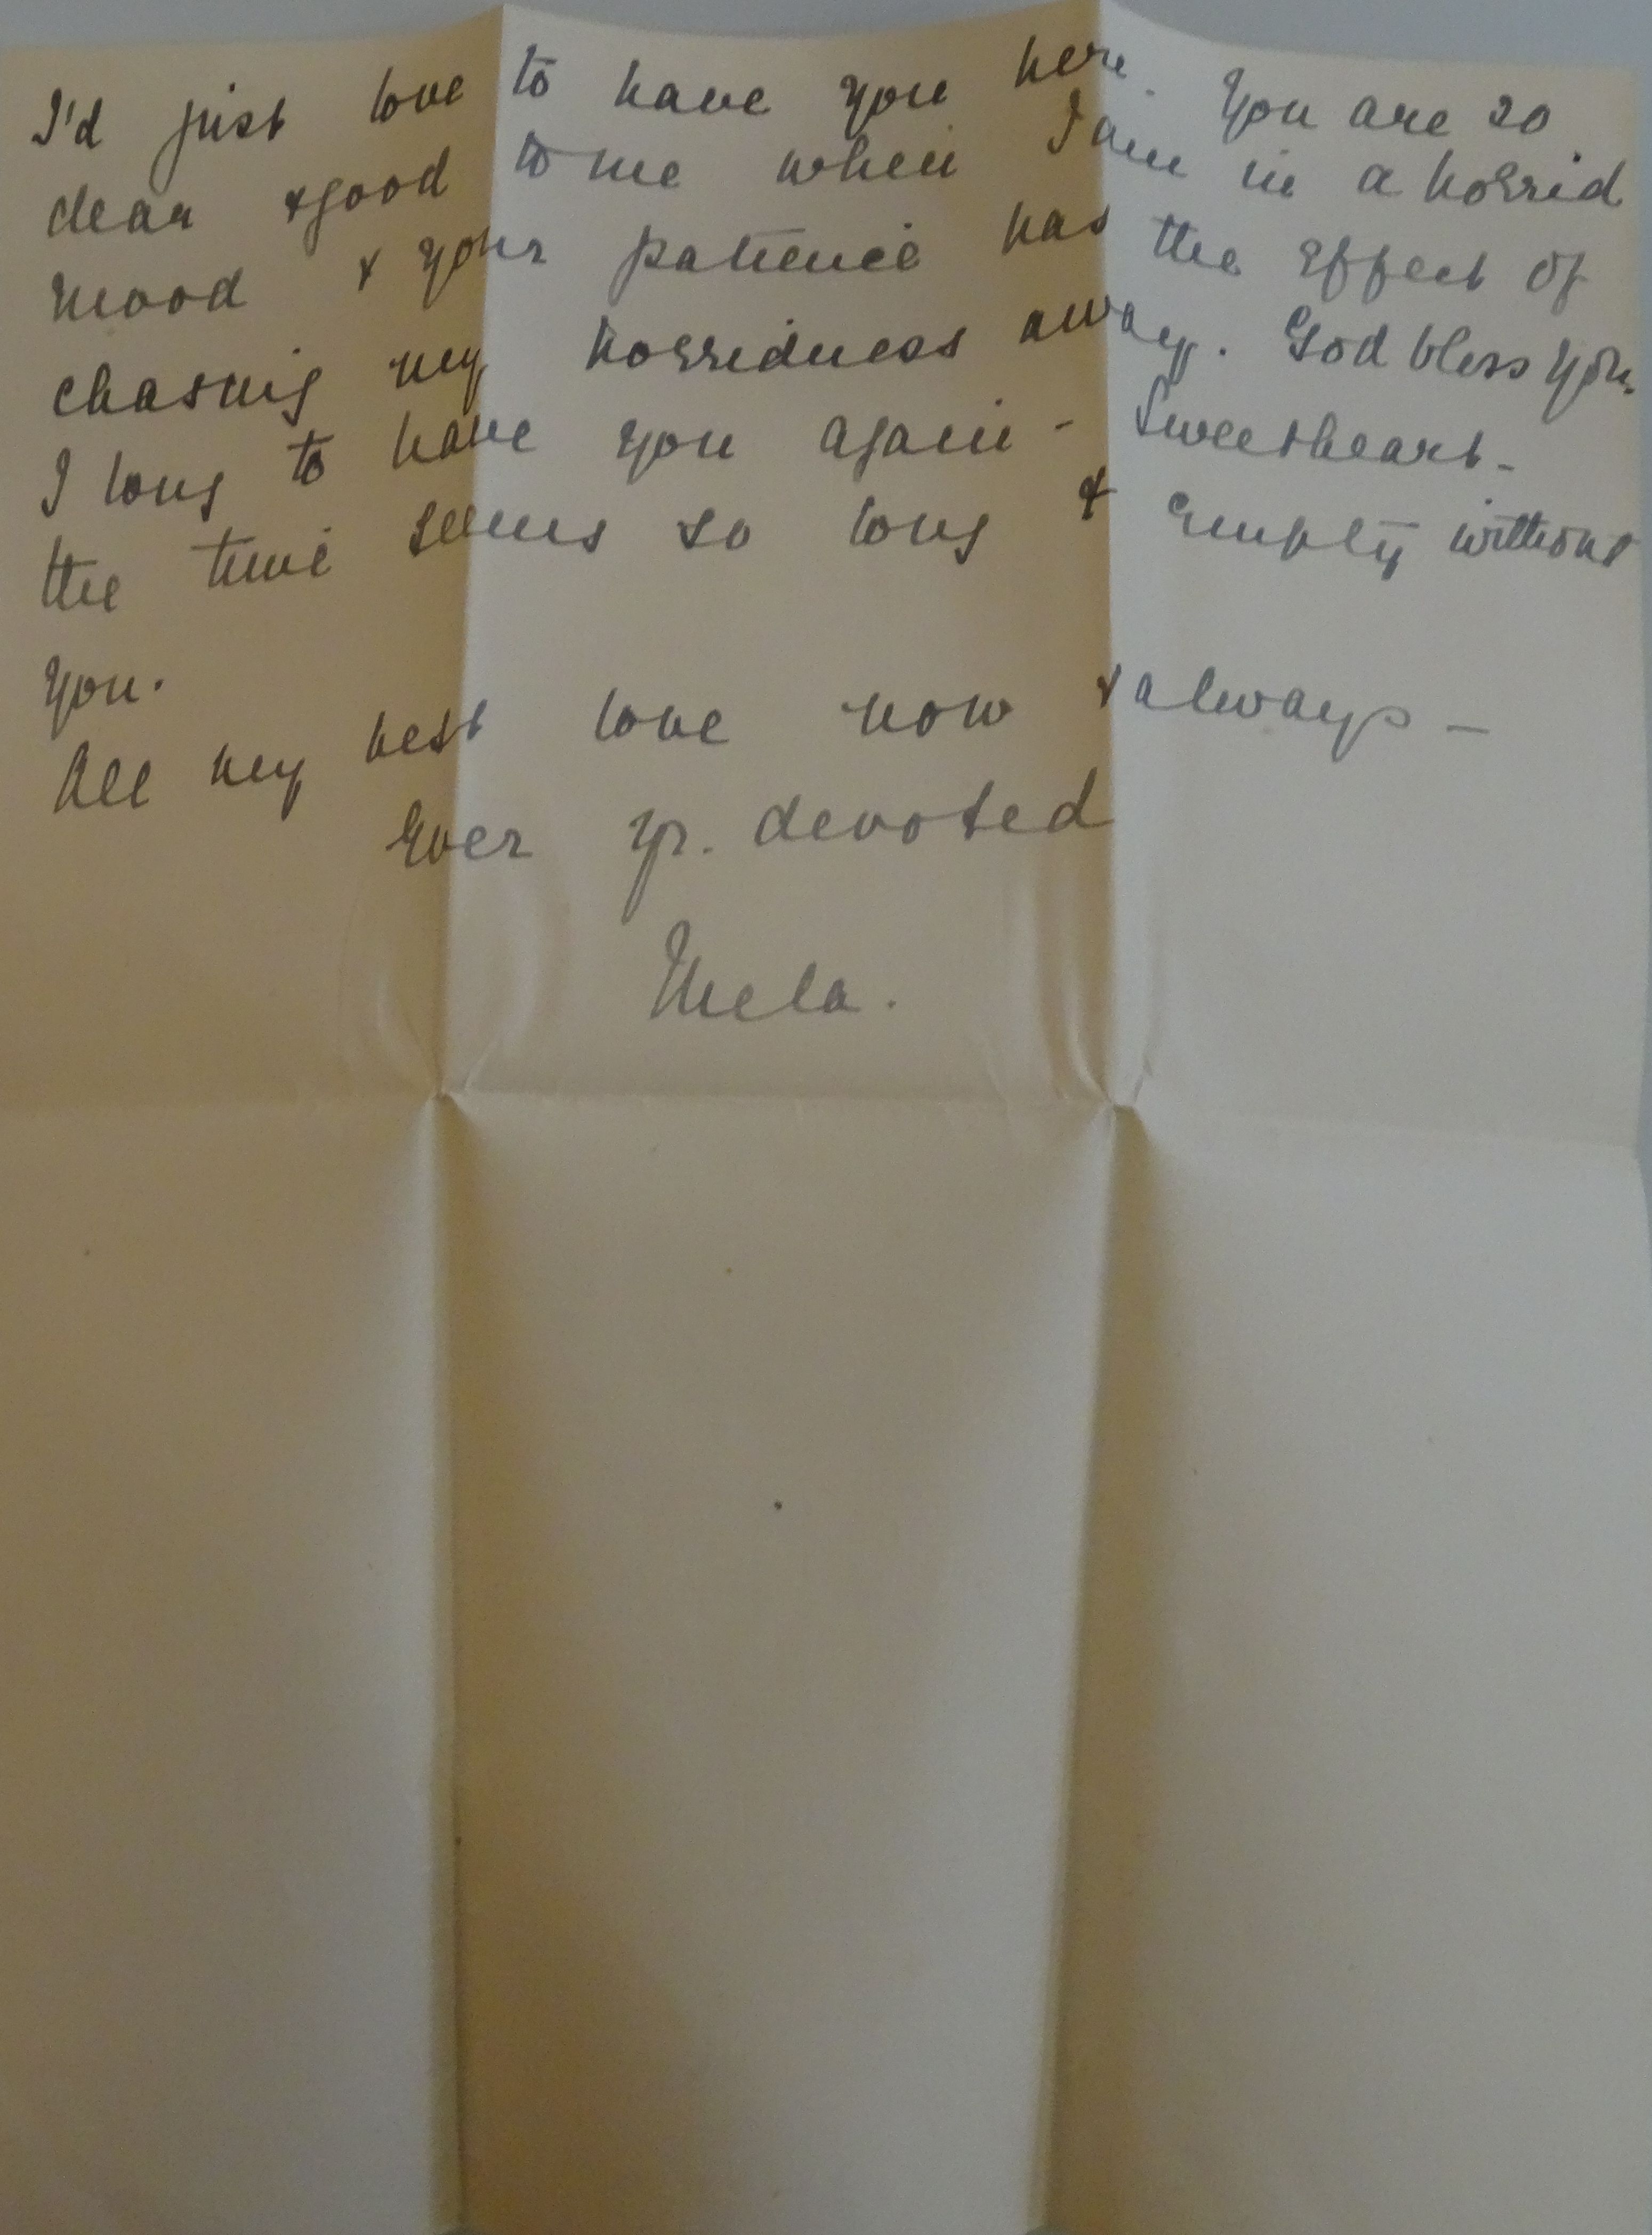 I'd just love to have you here. You are so
dear & good to me when I am in a horrid
mood & your patience has the effect of
chasing my horridness away. God bless you.
I long to have you again - Sweetheart -
the time seems so long & empty without
you.
All my best love now & always -
Ever yr. devoted